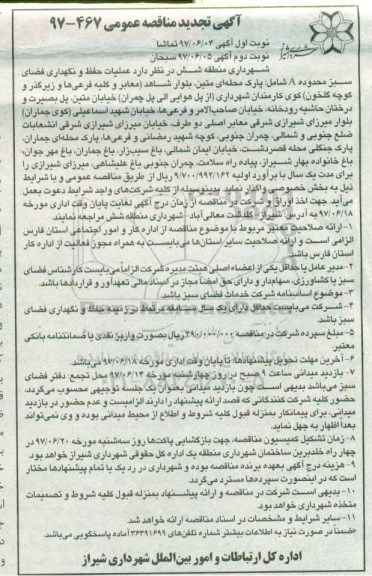 آگهی تجدید مناقصه عمومی ۴۶۷-۹۷
نوبت اول آگهی ۹۷/۰۶/۰۴ تماشا
نوبت دوم آگهی ۹۷/۰۶/۰۵ سبحان
شهرداری منطقه شش در نظر دارد عملیات حفظ و نگهداری فضای
سبز محدوده A شامل: پارک محله‌ای متین، بلوار شاهد (معابر و کلیه فرعی‌ها و زیرگذر و
کوچه گلخون) کوی کارمندان شهرداری (از پل هوایی الی پل چمران) خیابان متین، پل بصیرت و
درختان حاشیه رودخانه، خیابان صاحب‌الامر و فرعی‌ها، خیابان شهید اسماعیلی (کوی جماران)
بلوار میرزای شیرازی شرقی معابر اصلی دو طرف، خیابان میرزای شیرازی شرقی انشعابات
ضلع جنوبی و شمالی، چمران جنوبی، کوچه شهید رمضانی و فرعی‌ها، پارک محله‌ای جماران،
پارک جنگلی محله قصردشت، خیابان ایمان شمالی، باغ سیب‌زار، باغ جماران، باغ مهر جوان،
باغ خانواده بهار شیراز، پیاده راه سلامت، چمران جنوبی باغ علیشاهی، میرزای شیرازی را
برای مدت یک سال با برآورد اولیه ۹/۷۰۰/۹۹۲/۱۶۲ ریال از طریق مناقصه عمومی و با شرایط
ذیل به بخش خصوصی واگذار نماید. بدینوسیله از کلیه شرکت‌های واجد شرایط دعوت بعمل
می‌آید. جهت اخذ اوراق و شرکت در مناقصه از زمان درج آگهی لغایت پایان وقت اداری مورخه
۹۷/۰۶/۱۸ به آدرس: شیراز- گلدشت معالی آباد- شهرداری منطقه شش مراجعه نمایند.
۱- ارائه صلاحیت معتبر مربوط با موضوع مناقصه از اداره کار و امور اجتماعی استان فارس
الزامی است و ارائه صلاحیت سایر استان‌ها می‌بایست به همراه مجوز فعالیت از اداره کار
استان فارس باشد.
۲- مدیر عامل یا حداقل یکی از اعضاء اصلی هیئت مدیره شرکت الزاماً می‌بایست کارشناس فضای
سبز یا کشاورزی، سهام‌دار و دارای حق امضا مجاز در اسناد مالی تعهدآور و قراردادها باشد.
۳- موضوع اساسنامه شرکت خدمات فضای سبز باشد.
۴- شرکت می‌بایست حداقل دارای یک سال سابقه مرتبط در زمینه حفظ و نگهداری فضای
سبز باشد.
۵- مبلغ سپرده شرکت در مناقصه ۲۸۰/۰۰۰/۰۰۰ ریال بصورت واریز نقدی یا ضمانتنامه بانکی
معتبر.
۶- آخرین مهلت تحویل پیشنهادها تا پایان وقت اداری مورخه ۹۷/۰۶/۱۸ می‌باشد.
۷- بازدید میدانی ساعت ۹ صبح در روز چهارشنبه مورخه ۹۷/۰۶/۱۴ محل تجمع: دفتر فضای
سبز می‌باشد بدیهی است چون بازدید میدانی بعنوان یک جلسه توجیهی محسوب می‌گردد،
حضور کلیه شرکت کنندگانی که قصد ارائه پیشنهاد را دارند الزامیست و عدم حضور در بازدید
میدانی، برای پیمانکار بمنزله قبول کلیه شروط و اطلاع از محیط میدانی بوده و وی نمی‌تواند
بعداً اظهار به جهل نماید.
۸- زمان تشکیل کمیسیون مناقصه، جهت بازگشایی پاکت‌ها روز سه‌شنبه مورخه ۹۷/۰۶/۲۰ در
چهار راه خلدبرین ساختمان شهرداری منطقه یک اداره کل حقوقی شهرداری شیراز خواهد بود.
۹- هزینه درج آگهی بعهده برنده مناقصه بوده و شهرداری در رد یک یا تمام پیشنهادها مختار
است که در اینصورت سپرده‌ها مسترد می‌گردد.
۱۰- بدیهی است شرکت در مناقصه و ارائه پیشنهاد بمنزله قبول کلیه شروط و تصمیمات
متخذه شهرداری خواهد بود.
۱۱- سایر شرایط و مشخصات در اسناد مناقصه ارائه خواهد شد.
ضمناً در صورت نیاز به اطلاعات بیشتر شماره تلفن‌های ۳۶۳۹۱۶۹۹ آماده پاسخگویی می‌باشد.
اداره کل ارتباطات و امور بین‌الملل شهرداری شیراز